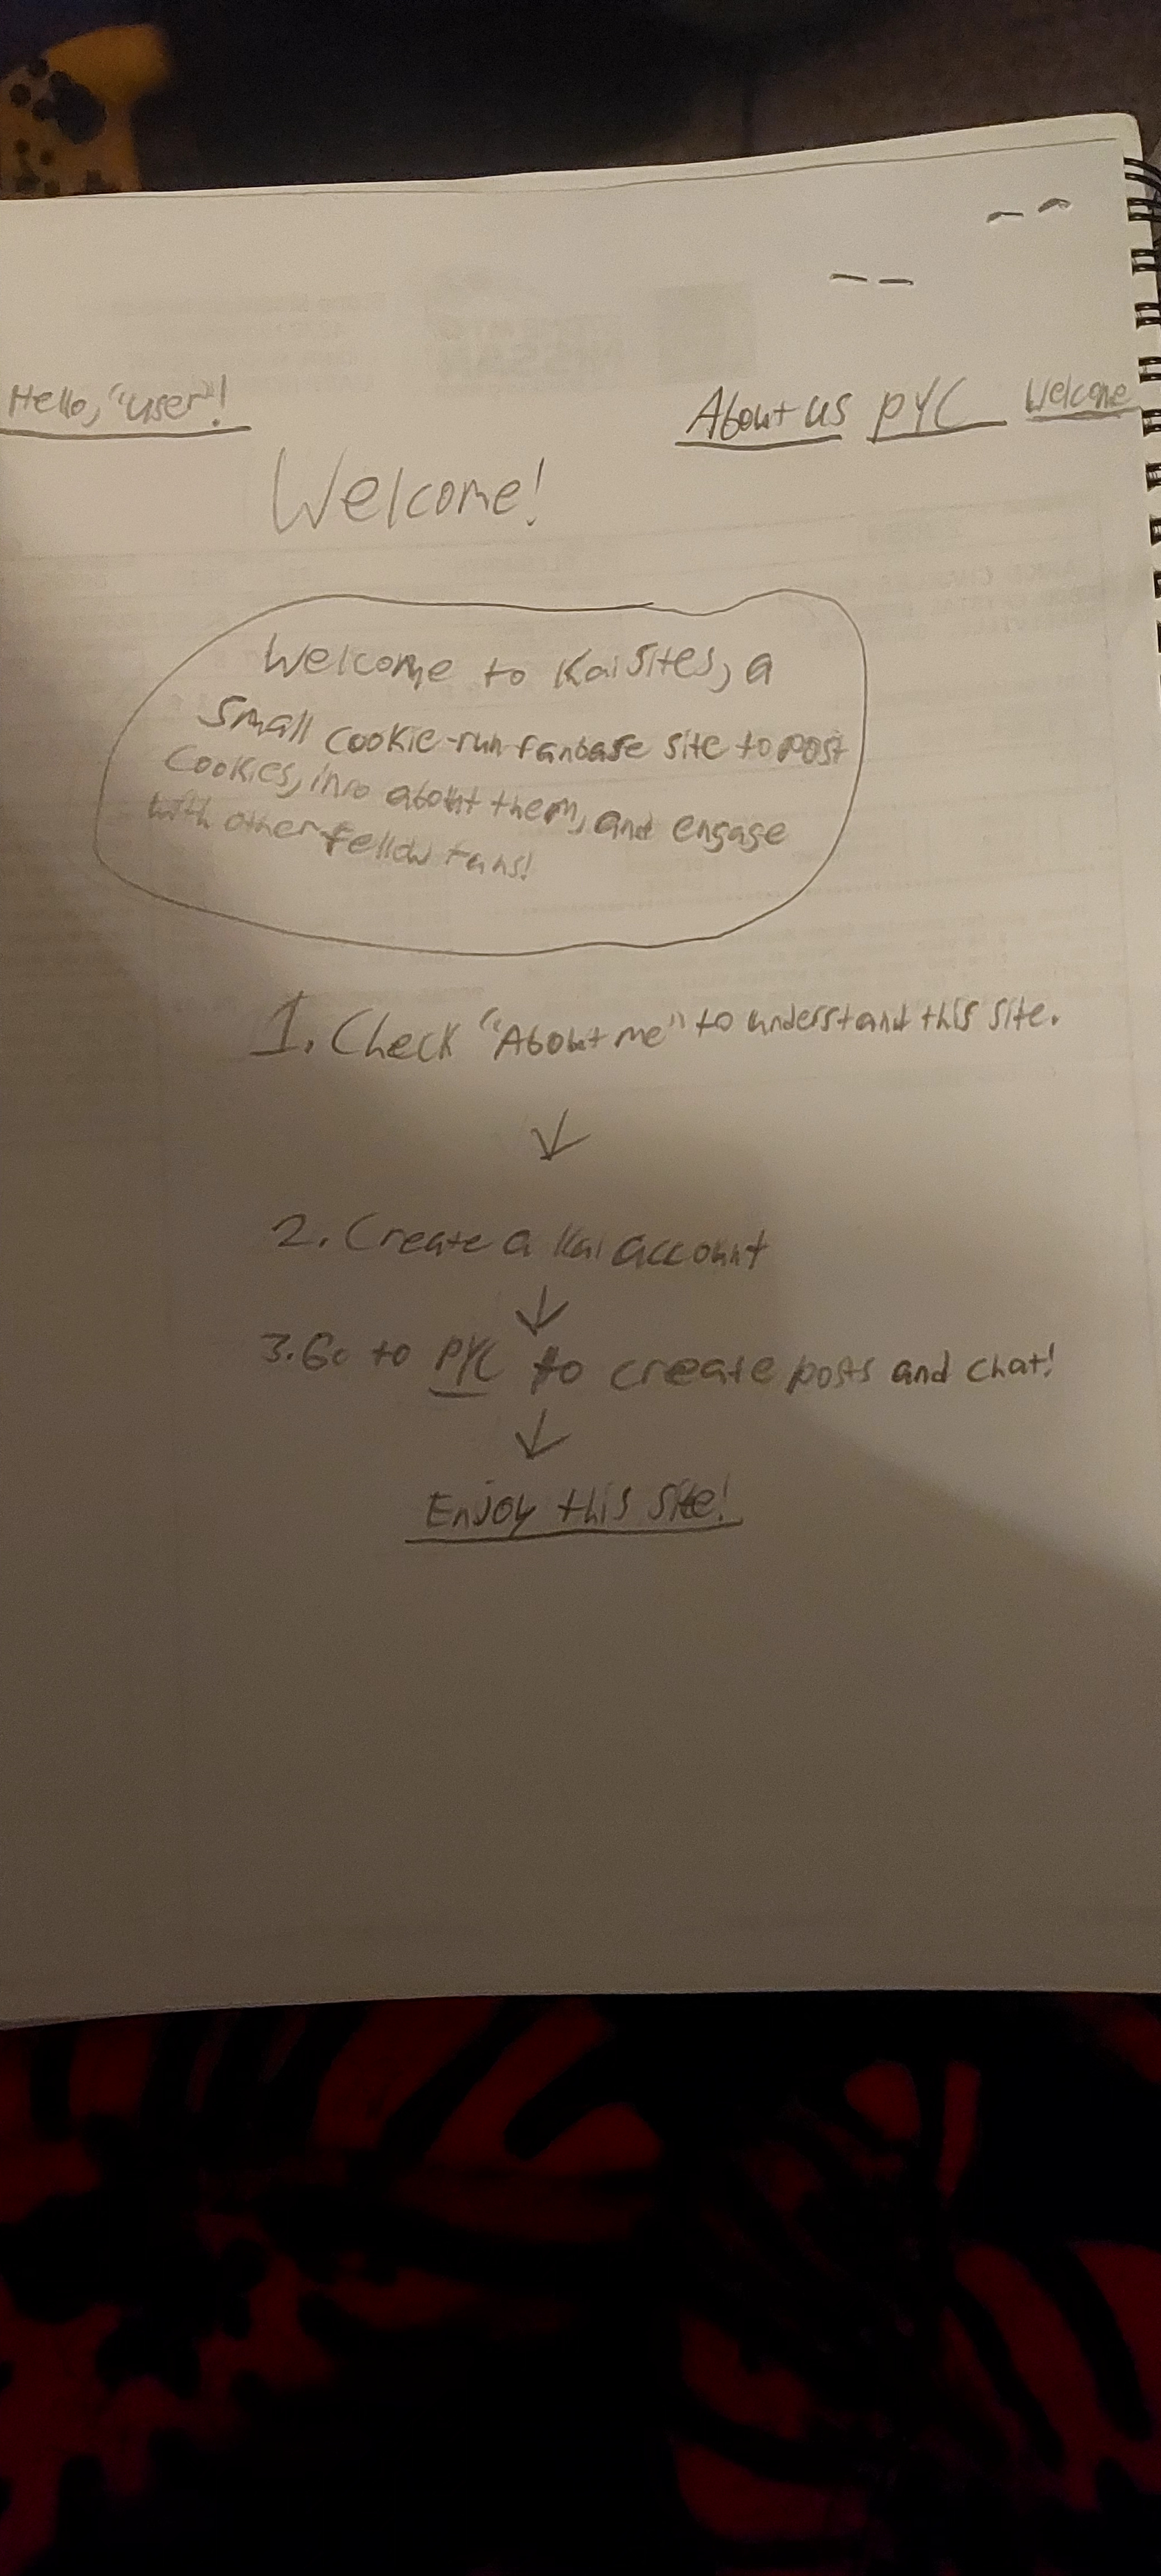 Hello, "user"!
About us PYC Welcome
Welcome!
Welcome to KaiSites, a
Small cookie-run fanbase site to post
Cookies, info about them, and engage
with other fellow fans!
1. Check "About me" to understand this site.
2. Create a Kai account
3. Go to PYC to create posts and chat!
Enjoy this site!